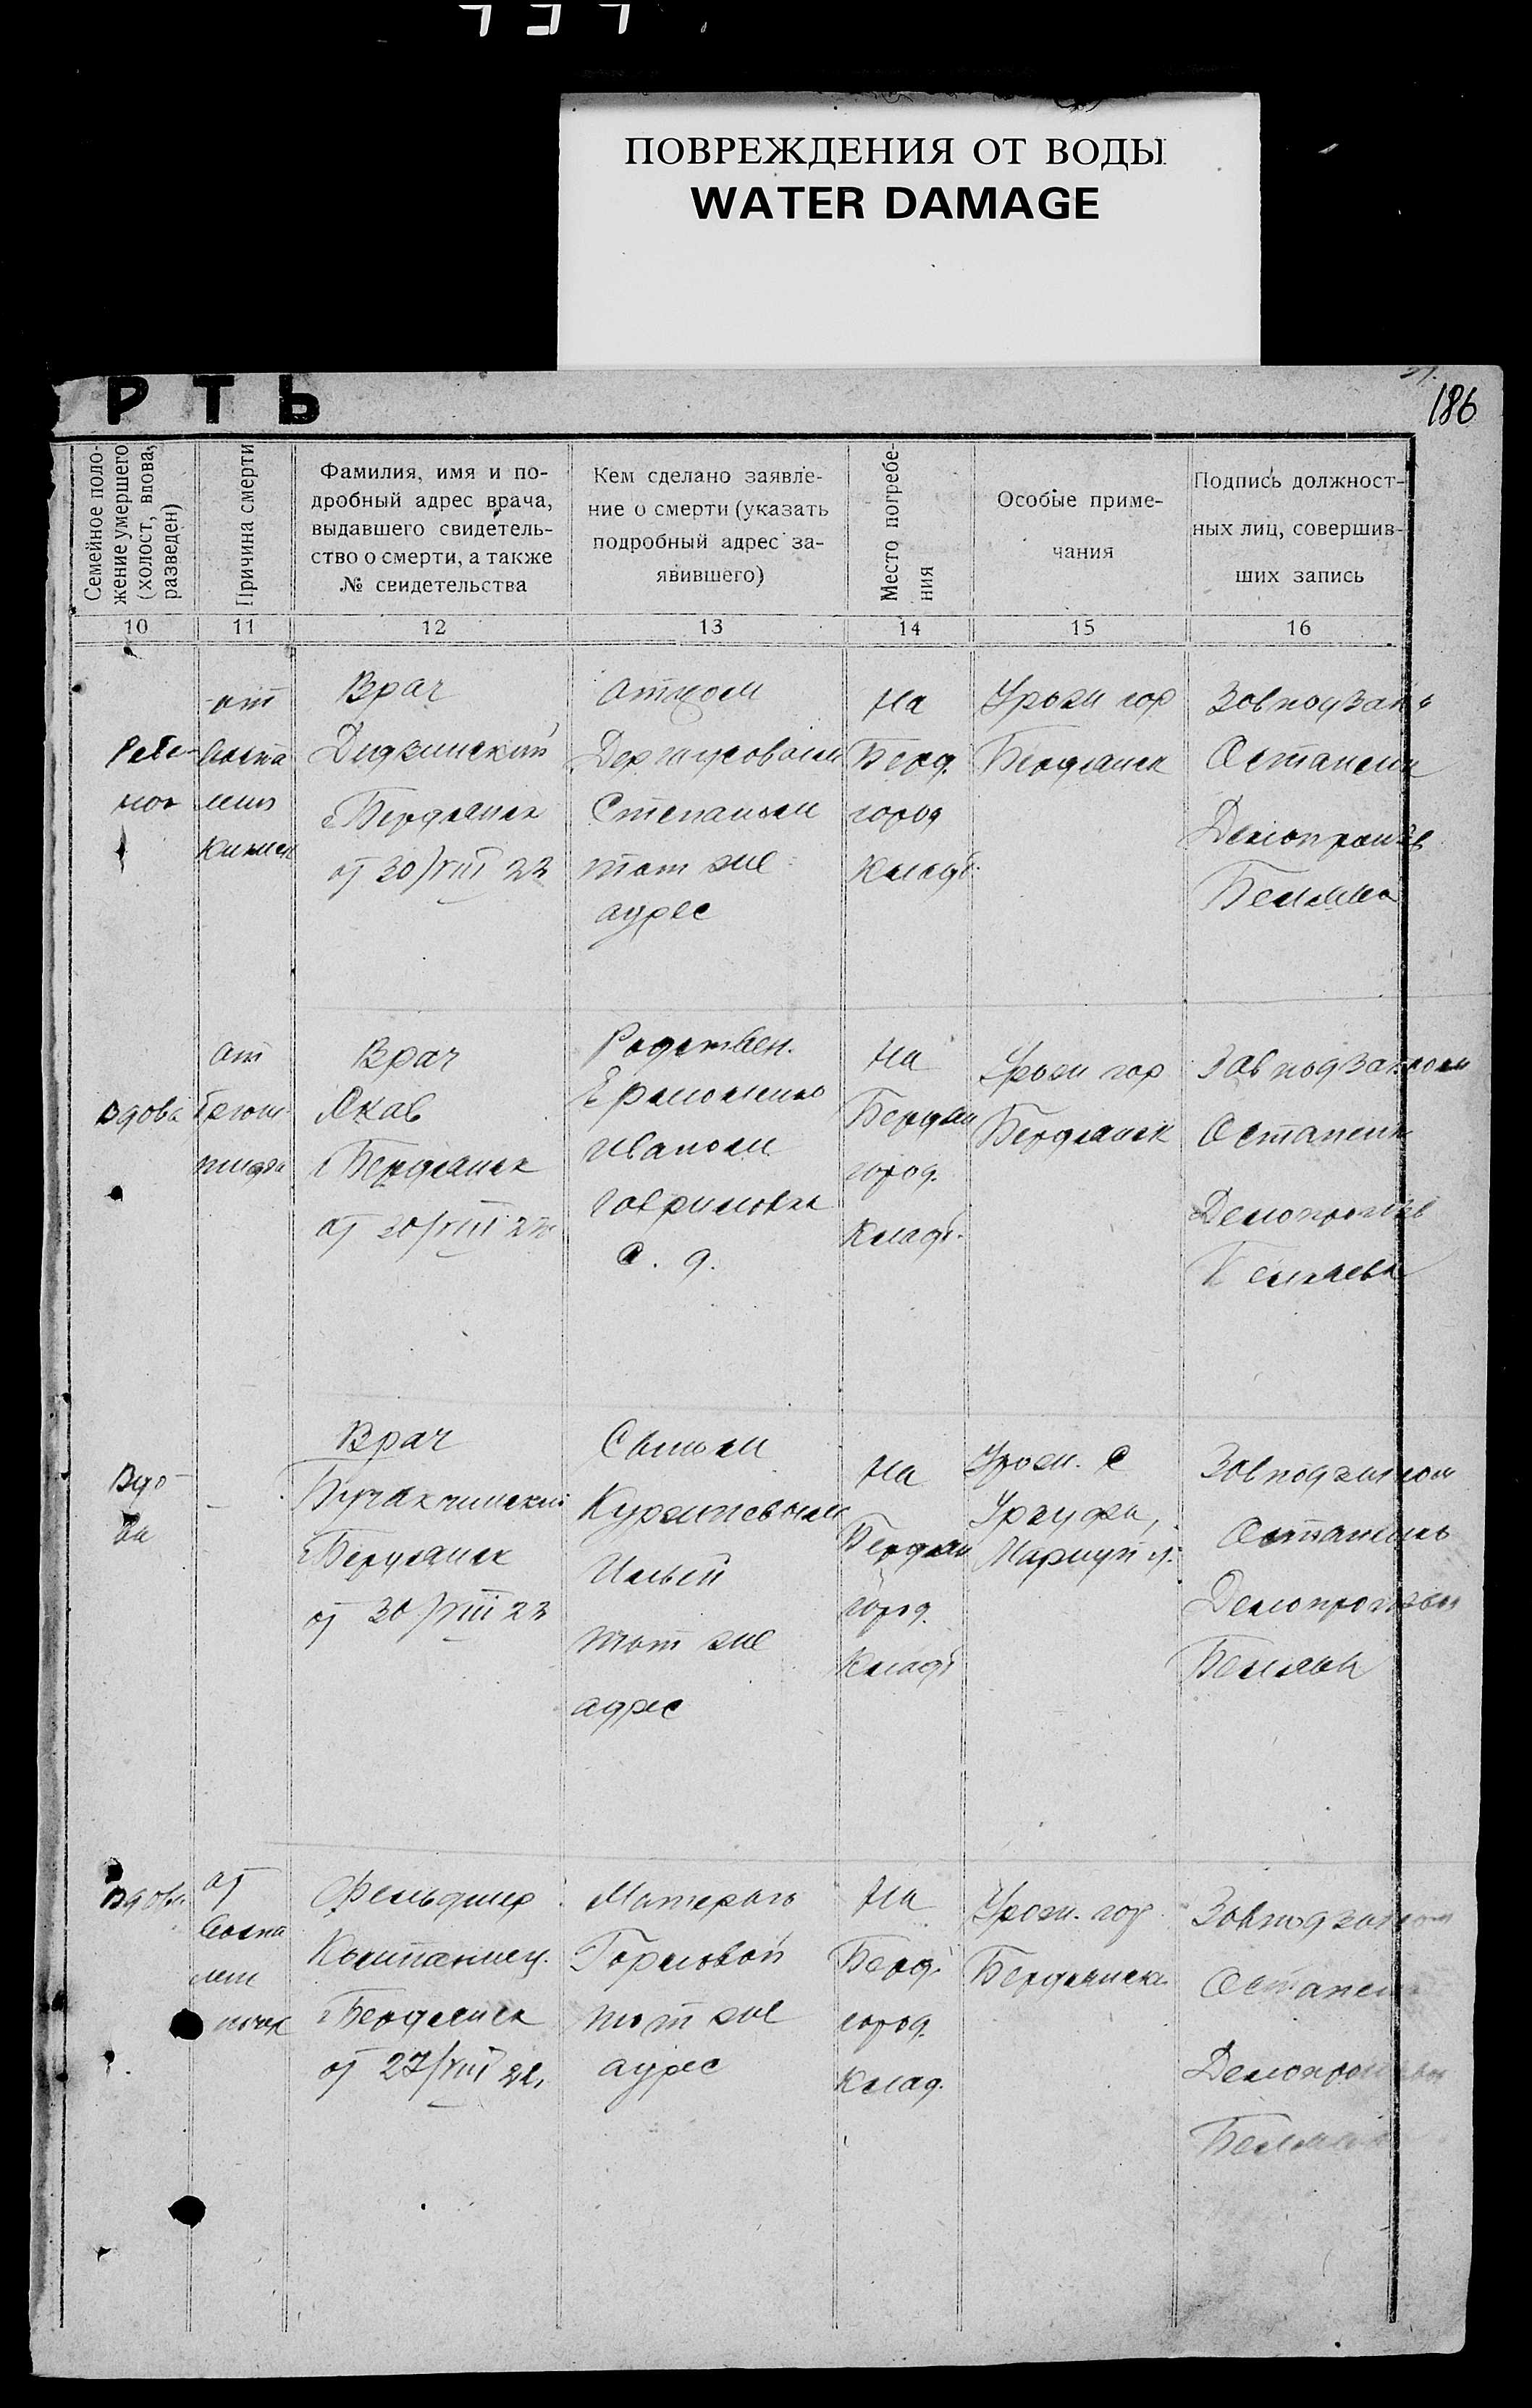 ПОВРЕЖДЕНИЯ ОТ ВОДЫ
WATER DAMAGE
РТЬ
186
Семейное поло-
жение умершего
(холост, вдова,
разведен)
Причина смерти
Фамилия, имя и по-
дробный адрес врача,
выдавшего свидетель-
ство о смерти, а также
№ свидетельства
Кем сделано заявле-
ние о смерти (указать
подробный адрес за-
явившего)
Место погребе-
ния
Особые приме-
чания
Подпись должност-
ных лиц, совершив-
ших запись
10
11
12
13
14
15
16
Ребе-
нок
от
воспа
лен
кишек
Врач
Дидзинский
Бердянск
от 30/VIII 22
отцом
Степаном
тот же
адрес
На
Берд.
город
кладб.
Урож гор
Бердянск
Завподзаг
Остапенк
Делопроизв
Вдова
от
Врач
Якав
Бердянск
от 30/VIII 22
Родствен.
Ермоленко
Иваном
Гавриловка
с. д.
На
Бердян
город.
кладб.
Урож гор
Бердянск
Остапенк
Делопроизв
Вдо-
ва
-
Врач
Бердянск
от 30/VIII 22
Сыном
Ильей
тот же
адрес
На
Бердян
город.
кладб
Урож. с
Урзуфа,
Мариуп
Остапенко
Делопроизвод
Вдова
от
воспа
лен
почек
Фельдшер
Бердянск
от 27/VIII 22,
Матерью
Горловой
тот же
адрес
На
Берд.
город.
клад.
Урож. гор
Бердянска
Остапен
Делопроизвод